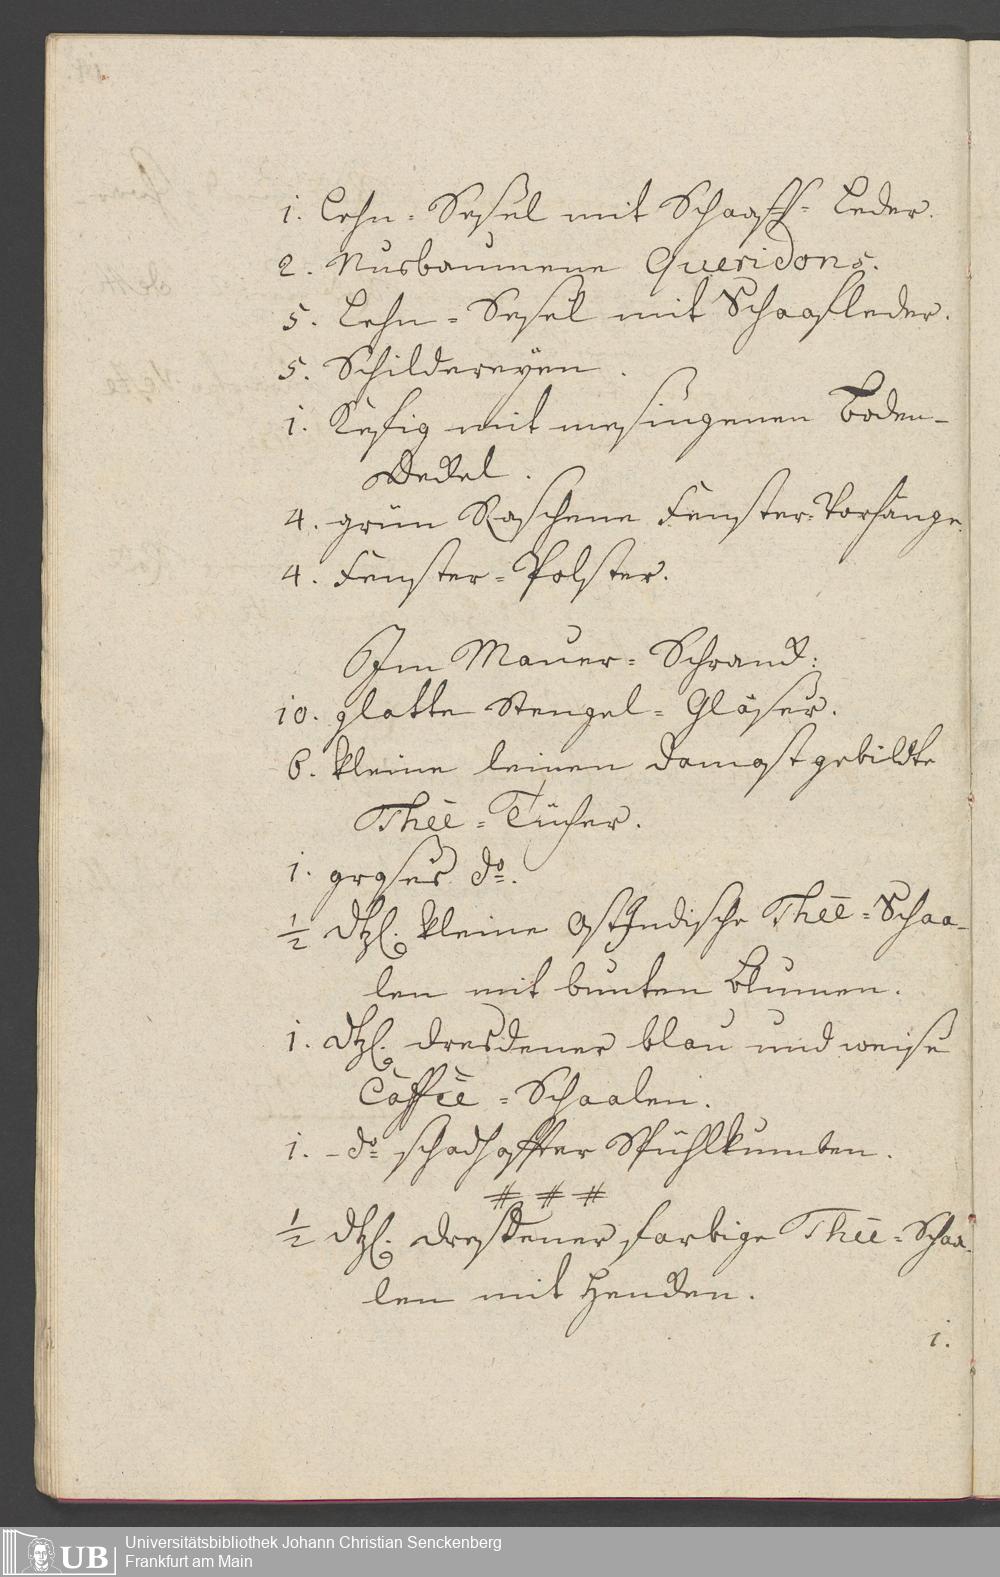 1. Lehn-Sessel mit Schaaff-Leder.
2. Nusbaumene Queridons.
5. Lehn-Sessel mit Schaafleder.
5. Schildereyen.
1. Kefig mit messingenen Boden-
Deckel.
4. grün Raschene Fenster-Vorhänge.
4. Fenster-Polster.
Im Mauer-Schranck:
10. glatte Stengel-Gläser.
6. kleine leinen damast gebildte
Theé-Tücher.
1. groses do.
½ dtzl. kleine OstIndische Theé-Schaa-
len mit bunten Blumen.
1. dtzl. dresdener blau und weise
Caffeé-Schaalen.
1. - do schadhaffter Spühlkumten.
# # #
½ dtzl. dresdener farbige Theé-Schaa-
len mit Hencken.
1.
UB Universitätsbibliothek Johann Christian Senckenberg
Frankfurt am Main